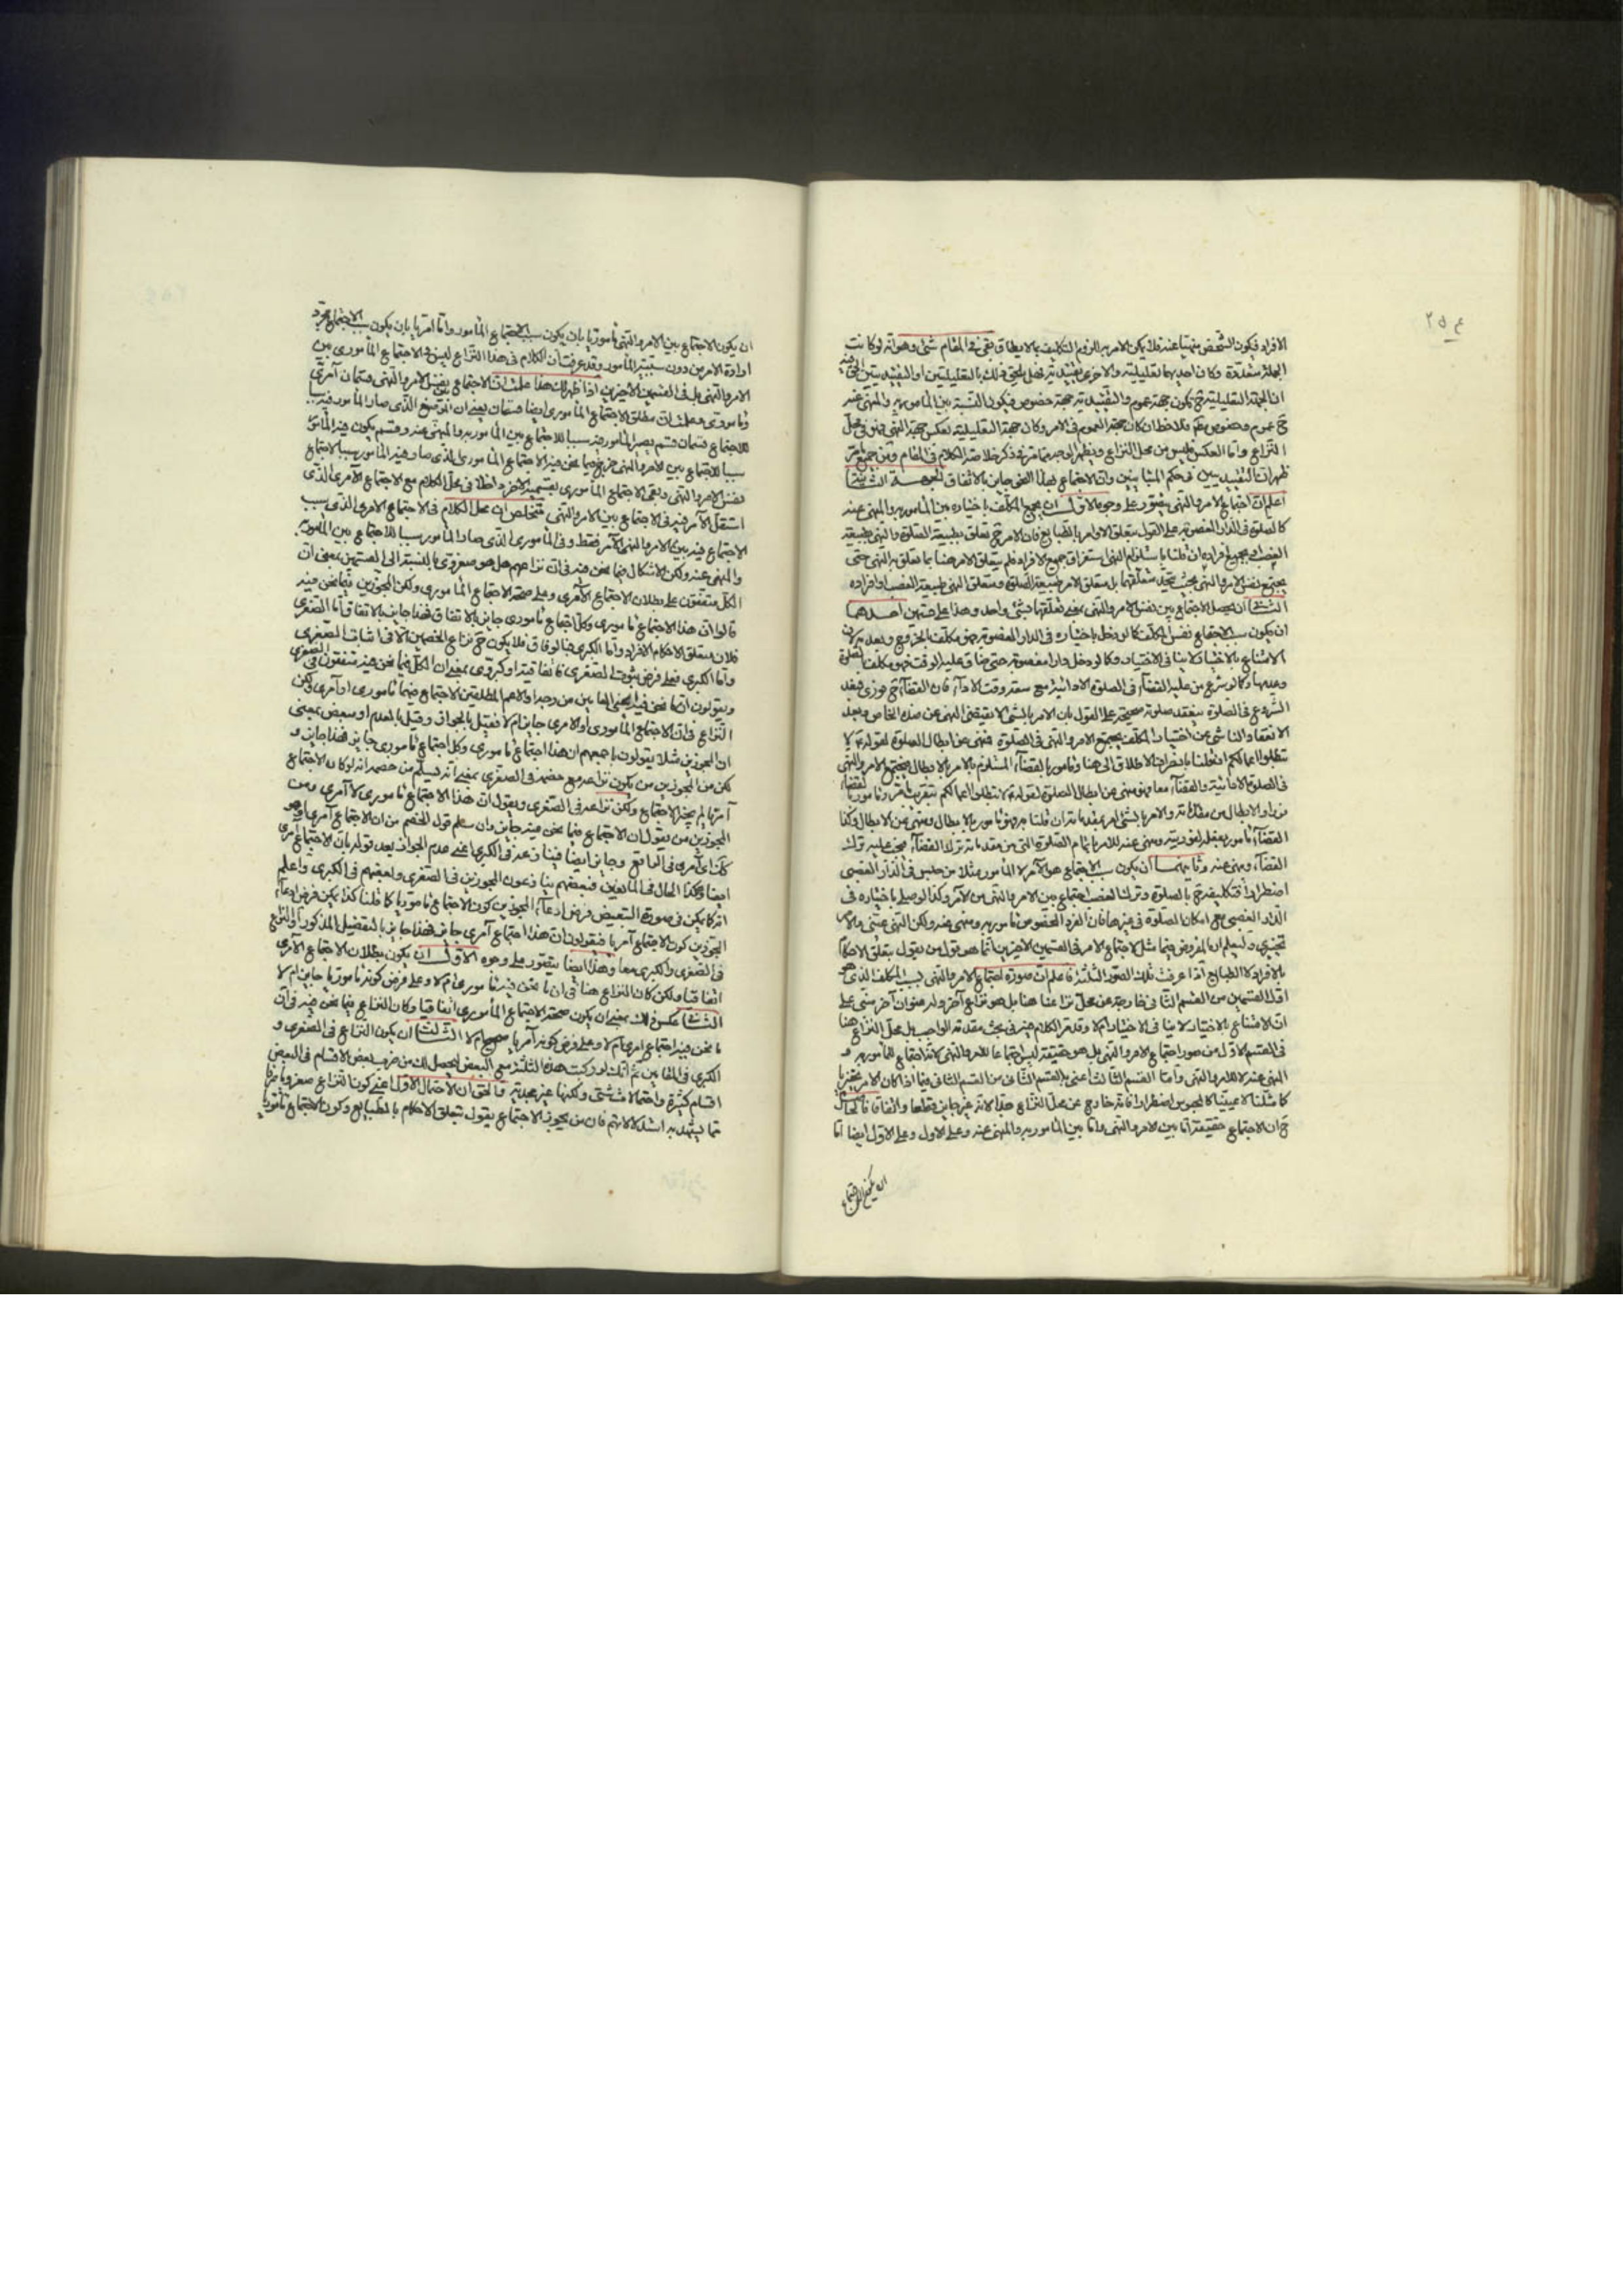 ٢٥٤
الافراد فيكون الشخص منهيا عنه فلا يمكن الامر به للزوم التكليف بما لا يطاق بقى فى المقام شئ وهو انه لو كانت
الجهة متعددة وكان احديهما تعليلية والاخرى تقييدية فهل يلحق ذلك بالتعليليتين او التقييديتين
ان الجهة التعليلية جهة عموم والتقييدية جهة خصوص فيكون النسبة بين المأمور به والمنهى عنه
ح عموم وخصوص فلاحظ ان كان جهة العموم فى الامر وكان جهة التعليلية بعكس جهة النهى فهو فى محل
النزاع واما العكس فليس من محل النزاع ويظهر الوجه مما مر فى ذكر خلاصة الكلام فى المقام ومن جميع ما مر
ظهر ان التقييديتين فى حكم المتباينين وان الاجتماع بهذا النحو جايز بالاتفاق الجهة الثانية
اعلم ان اجتماع الامر والنهى يتصور على وجوه الاول ان يجمع المكلف باختياره بين المأمور به والمنهى عنه
كالصلوة فى الدار المغصوبة على القول بتعلق الاوامر بالطبايع فان الامر ح تعلق بطبيعة الصلوة والنهى بطبيعة
الغصب او بجميع افراده ان قلنا باستلزام النهى استغراق جميع الافراد فلم يتعلق الامر هنا بما تعلق به النهى حتى
يجتمع نفس الامر والنهى بحيث يتحد متعلقهما بل متعلق الامر طبيعة الصلوة ومتعلق النهى طبيعة الغصب او افراده
الثانى ان يحصل الاجتماع بين نفس الامر والنهى بمعنى تعلقهما بشئ واحد وهذا على قسمين احدهما
ان يكون سبب الاجتماع نفس المكلف كما لو دخل باختياره فى الدار المغصوبة فهو مكلف بالخروج وبعدمه لان
الامتناع بالاختيار لا ينافى الاختيار وكما لو دخل دارا مغصوبة حتى ضاق عليه الوقت فهو مكلف بالصلوة
وعدمها وكما لو شرع من عليه القضآء فى الصلوة الادائية مع سعة وقت الادآء فان القضآء ح فورى فبعد
الشروع فى الصلوة ينعقد صلوته صحيحة على القول بان الامر بالشئ لا يقتضى النهى عن ضده الخاص وبعد
الانعقاد الناشى من اختيار المكلف يجتمع الامر والنهى فى الصلوة فنهى عن ابطال الصلوة لقوله تع لا
تبطلوا اعمالكم ان قلنا بانصراف الاطلاق الى هنا ومأمور بالقضآء المستلزم للامر بالابطال فيجتمع الامر والنهى
فى الصلوة الادائية والقضآء معا فهو منهى عن ابطال الصلوة لقوله تع لا تبطلوا اعمالكم بتقريب ما مر ومأمور بالقضآء
فورا والابطال من مقدماته والامر بالشئ امر بمقدماته ان قلنا به فهو مأمور بالابطال ومنهى عن الابطال وكذا
القضآء مأمور بفعله لفوريته ومنهى عنه للامر باتمام الصلوة التى من مقدماته ترك القضآء فيجب عليه ترك
القضآء ومنهى عنه وثانيهما ان يكون سبب الاجتماع هو الآمر لا المأمور مثلا من حبس فى الدار الغصبى
اضطرارا فتكليفه ح بالصلوة وترك الغصب اجتماع بين الامر والنهى من الآمر وكذا لو صلى باختياره فى
الدار الغصبى مع امكان الصلوة فى غيرها فان الفرد المخصوص مأمور به ومنهى عنه ولكن النهى عينى والامر
تخييرى وليعلم ان المفروض فيما مثل لاجتماع الامر فى القسمين الاخيرين انما هو قول من يقول بتعلق الاحكام
بالافراد لا الطبايع اذا عرفت تلك الصور الثلثة فاعلم ان صورة اجتماع الامر والنهى بسبب المكلف الذى هو
اول القسمين من القسم الثانى خارجة عن محل نزاعنا هنا بل هو نزاع آخر وله عنوان آخر مبنى على
ان الامتناع بالاختيار لا ينافى الاختيار ام لا وقد مر الكلام فيه فى بحث مقدمة الواجب بل محل النزاع هنا
فى القسم الاول من صور اجتماع الامر والنهى بل هو حقيقة ليس اجتماعا للامر والنهى لانه اجتماع للمأمور به و
المنهى عنه لا للامر والنهى واما القسم الثالث اعنى القسم الثانى من القسم الثانى فيما اذا كان الامر تخييريا
كما مثلنا لا عينيا كالمحبوس اضطرارا فانه خارج عن محل النزاع جدا لانه غير جايز قطعا واتفاقا فالحاصل
ح ان الاجتماع حقيقة اما بين الامر والنهى واما بين المأمور به والمنهى عنه وعلى الاول ايضا اما
ان يكون الاجتماع
ان يكون الاجتماع بين الامر والنهى مأموريا بان يكون سبب الاجتماع المأمور واما امريا بان يكون سبب الاجتماع مجرد
ارادة الامر من دون سببية المأمور وقد عرفت ان الكلام فى هذا النزاع ليس فى الاجتماع المأمورى من
الامر والنهى بل فى القسمين الاخيرين اذا ظهر لك هذا علمت ان الاجتماع بين نفس الامر والنهى قسمان آمرى
ومأمورى وعلمت ان مطلق الاجتماع المأمورى ايضا قسمان يعنى ان الموضع الذى صار المأمور فيه سببا
للاجتماع قسمان قسم يصير المأمور فيه سببا للاجتماع بين المأمور به والمنهى عنه وقسم يكون فيه المأمور
سببا للاجتماع بين الامر والنهى خرج فيما نحن فيه الاجتماع المأمورى الذى صار فيه المأمور سببا لاجتماع
نفس الامر والنهى وبقى الاجتماع المأمورى بقسمه الاخر داخلا فى محل الكلام مع الاجتماع الآمرى الذى
استقل الآمر فيه فى الاجتماع بين الامر والنهى فتلخص ان محل الكلام فى الاجتماع الامرى الذى سبب
الاجتماع فيه بين الامر والنهى الآمر فقط وفى المأمورى الذى صار المأمور سببا للاجتماع بين المأمور به
والمنهى عنه ولكن الاشكال فيما نحن فيه فى ان نزاعهم هل هو صغروى بالنسبة الى القسمين بمعنى ان
الكل متفقون على بطلان الاجتماع الآمرى وعلى صحة الاجتماع المأمورى ولكن المجوزين فيما نحن فيه
قالوا ان هذا الاجتماع مأمورى وكل اجتماع مأمورى جايز بالاتفاق فهذا جايز بالاتفاق اما الصغرى
فلان متعلق الاحكام الافراد واما الكبرى فبالوفاق فلا يكون ح نزاع الخصمين الا فى اثبات الصغرى
واما الكبرى فعلى فرض ثبوت الصغرى فاتفاقية او كبروى بمعنى ان الكل فيما نحن فيه متفقون فى الصغرى
ويقولون ان ما نحن فيه اعنى العامين من وجه او الاعم المطلقين الاجتماع فيهما مأمورى او آمرى ولكن
النزاع فى ان الاجتماع المأمورى او الامرى جايز ام لا فقيل بالجواز وقيل بالعدم او مبعض بمعنى
ان المجوزين مثلا يقولون باجمعهم ان هذا اجتماع مأمورى وكل اجتماع مأمورى جايز فهذا جايز و
لكن من المجوزين من يكون نزاعه مع خصمه فى الصغرى بمعنى انه يسلم من خصمه انه لو كان الاجتماع
آمريا لم يجز الاجتماع ولكن نزاعه فى الصغرى ويقول ان هذا الاجتماع مأمورى لا آمرى ومن
المجوزين من يقول ان الاجتماع فيما نحن فيه جايز وان سلم قول الخصم من ان الاجتماع آمرى وهو
كذلك آمرى فى الواقع وجايز ايضا فينازعه فى الكبرى اعنى عدم الجواز بعد قوله بان الاجتماع آمرى
ايضا وهكذا الحال فى المانعين فبعضهم ينازعون المجوزين فى الصغرى وبعضهم فى الكبرى واعلم
انه كما يمكن فى صورة التبعيض فرض ادعآء المجوزين كون الاجتماع مأموريا كما قلنا كذا يمكن فرض ادعآء
المجوزين كون الاجتماع آمريا فيقولون ان هذا اجتماع آمرى جايز فهذا جايز بالتفصيل المذكور او النزاع
فى الصغرى والكبرى معا وهذا ايضا يتصور على وجوه الاول ان يكون بطلان الاجتماع الآمرى
اتفاقيا ولكن كان النزاع هنا فى ان ما نحن فيه مأمورى ام لا وعلى فرض كونه مأموريا جايز ام لا
الثانى عكس ذلك بمعنى ان يكون صحة الاجتماع المأمورى اتفاقيا وكان النزاع فيما نحن فيه فى ان
ما نحن فيه اجتماع امرى ام لا وعلى فرض كونه آمريا صحيح ام لا الثالث ان يكون النزاع فى الصغرى و
الكبرى فى المقامين ثم انك لو ركبت هذه الثلثة مع البعض ليحصل لك من ضرب بعض الاقسام فى البعض
اقسام كثيرة واحتمالات شتى ولكنها غير مجدية والحق ان الاحتمال الاول اعنى كون النزاع صغرويا صرفا
مما يشهد به استدلالاتهم فان من يجوز الاجتماع يقول بتعلق الاحكام بالطبايع وكون الاجتماع مأموريا